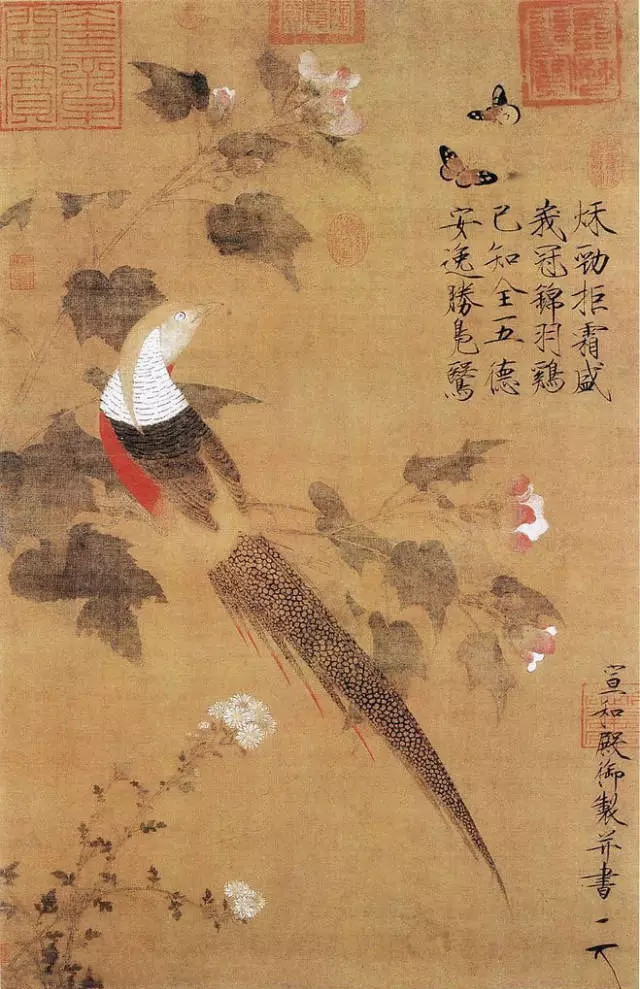 奎章
閣寶
秋勁拒霜盛
峩冠錦羽鷄
已知全五德
安逸勝鳧鷖
宣和殿御製并書